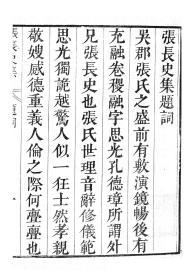 張長史集題詞
吳郡張氏之盛前有敷演鏡暢後有
充融卷稷融字思光孔德璋所謂外
兄張長史也張氏世理音辭修儀範
思光獨詭越驚人似一狂士然孝親
敬嫂感德重義人倫之際何亹亹也
張長史集
題詞